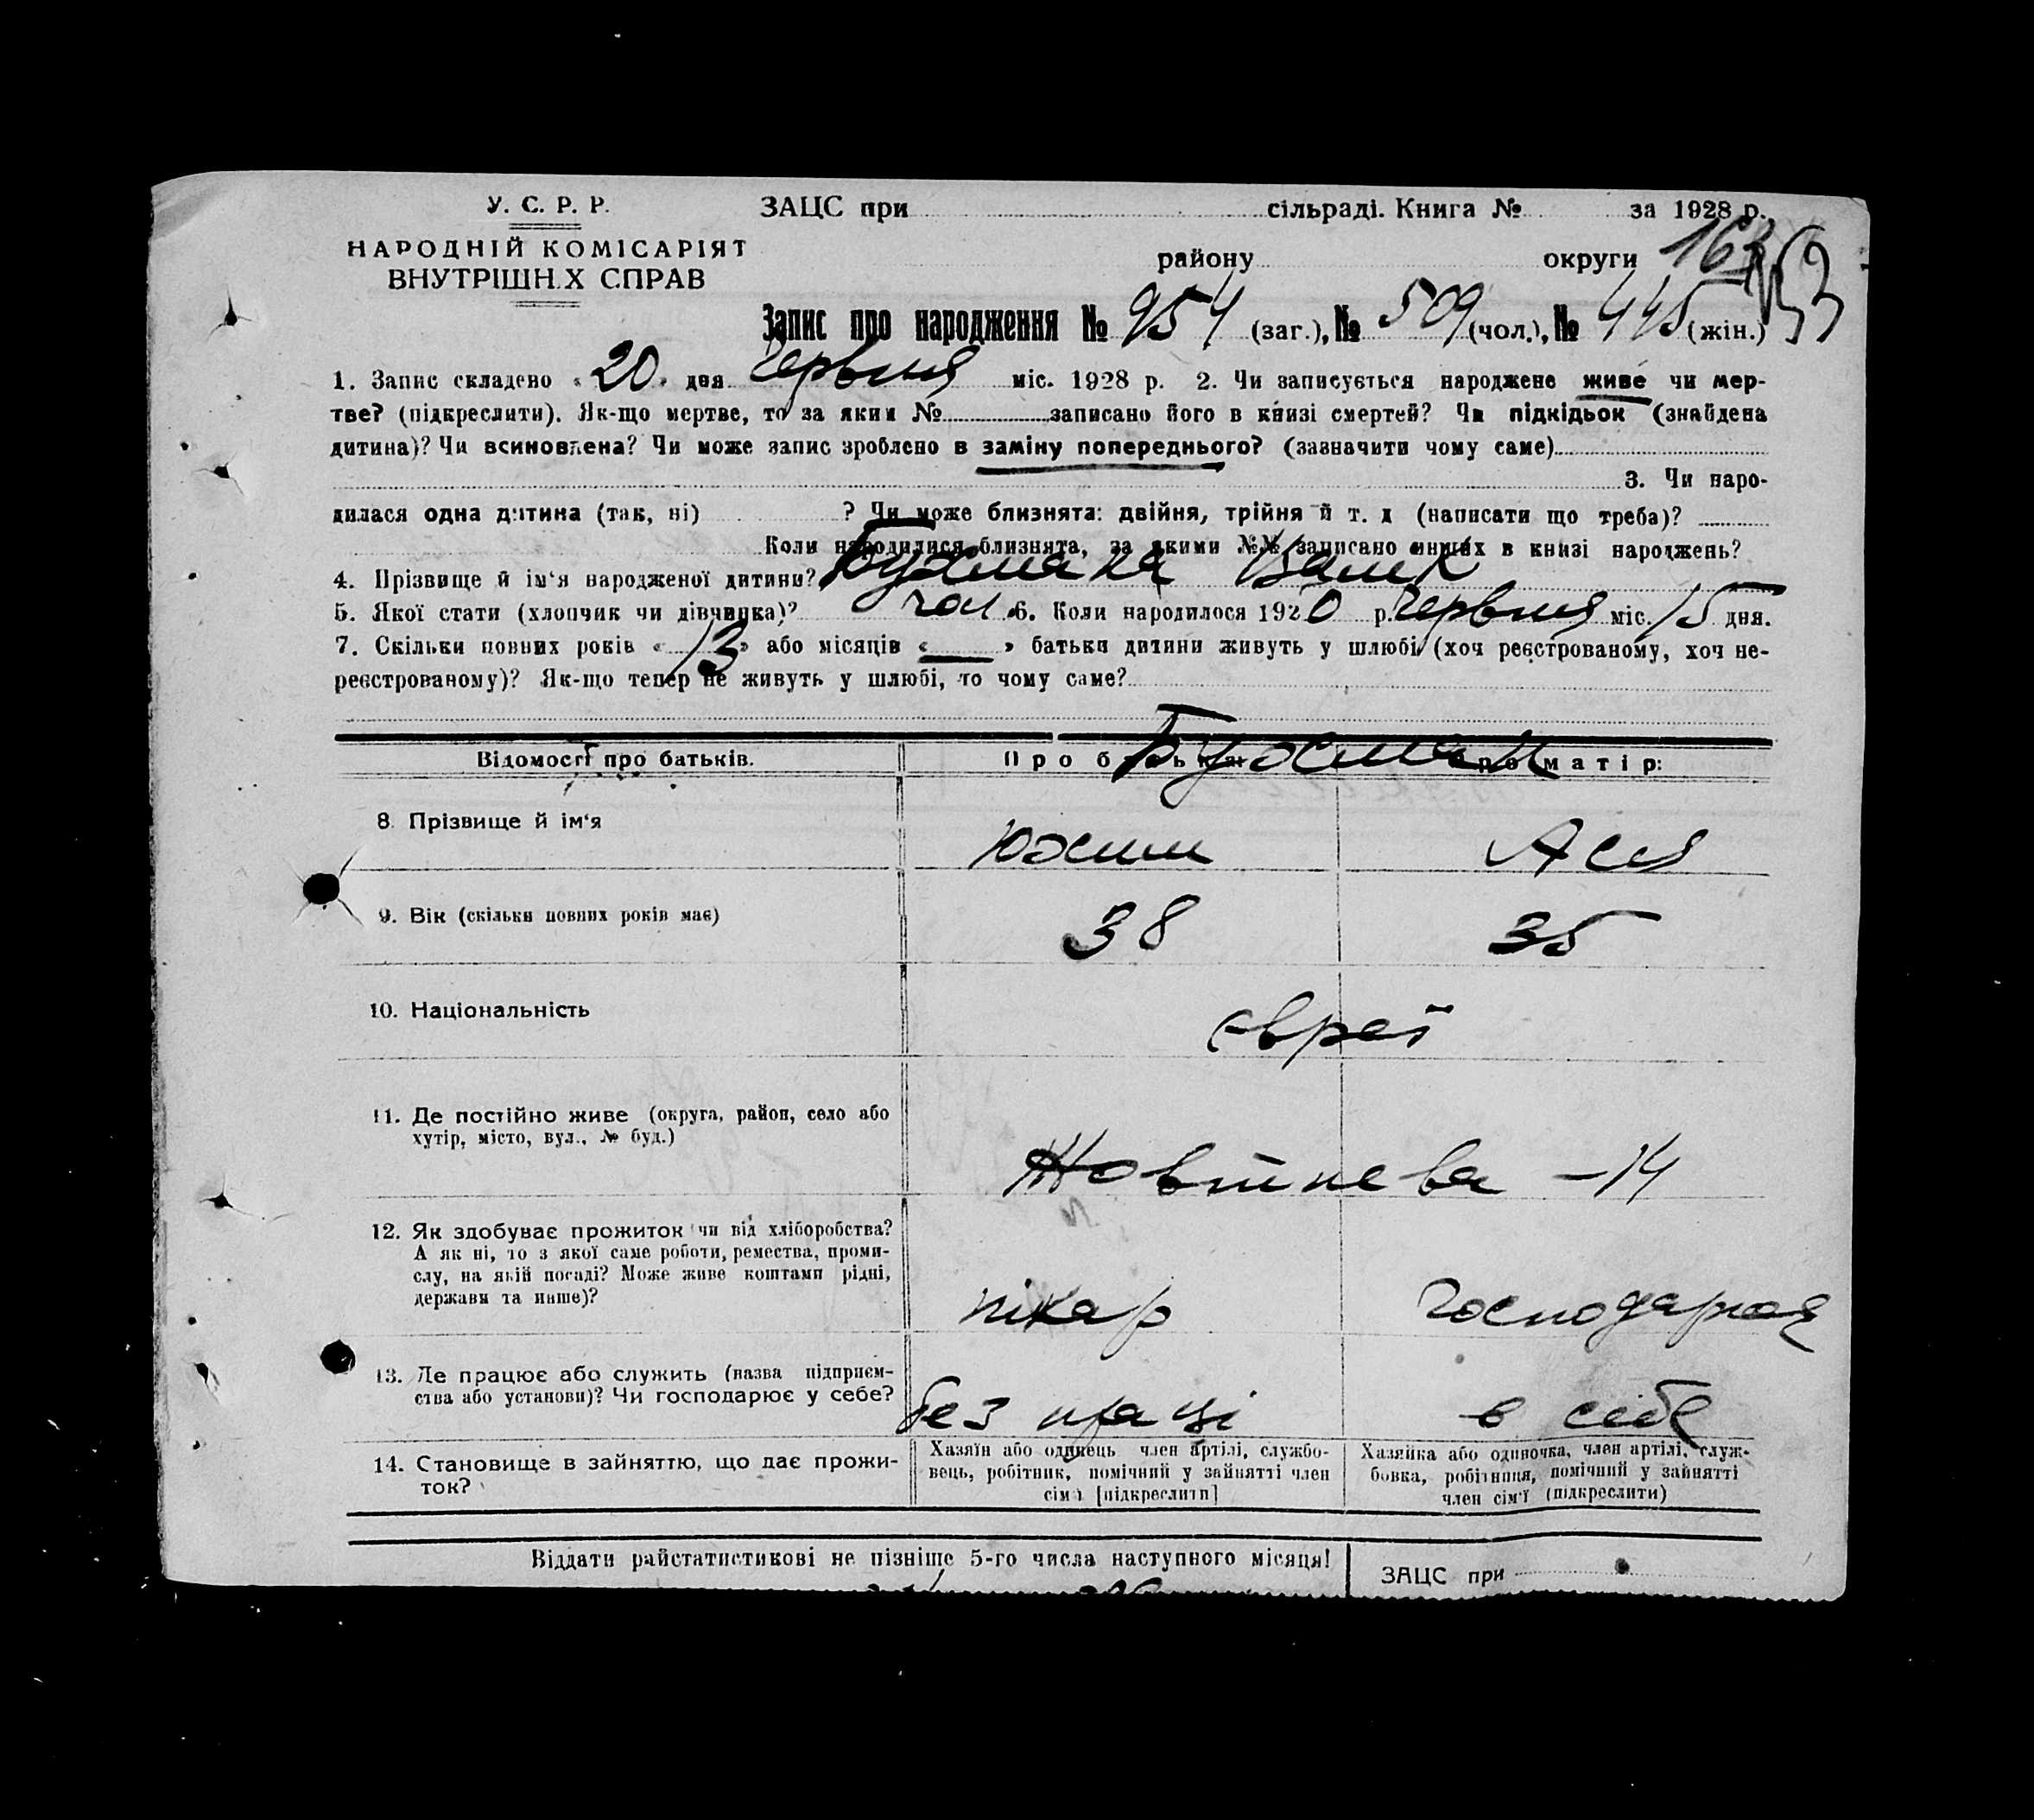 У. С. Р. Р.
НАРОДНІЙ КОМІСАРІЯТ
ВНУТРІШН.Х СПРАВ
ЗАЦС при сільраді. Книга № за 1928 р.
району округи
Запис про народження № 954 (заг.), № 509 (чол.), № 445 (жін.)
1. Запис складено « 20 » дня червня міс. 1928 р. 2. Чи записується народжене живе чи мер-
тве? (підкреслити). Як-що мертве, то за яким № записано його в книзі смертей? Чи підкідьок (знайдена
дитина)? Чи всиновлена? Чи може запис зроблено в заміну попереднього? (зазначити чому саме)
3. Чи наро-
дилася одна дитина (так, ні) ? Чи може близнята: двійня, трійня й т. д (написати що треба)?
Коли народилися близнята, за якими №№ записано инших в книзі народжень?
4. Прізвище й ім‘я народженої дитини?
5. Якої стати (хлопчик чи дівчинка)? чол. 6. Коли народилося 1920 р. червня міс. 15 дня.
7. Скільки повних років « 13 » або місяців « — » батьки дитини живуть у шлюбі (хоч реєстрованому, хоч не-
реєстрованому)? Як-що тепер не живуть у шлюбі, то чому саме?
Відомості про батьків. Про батька: Про матір:
Бухман
8. Прізвище й ім‘я Юхим Ася
9. Вік (скільки повних років має) 38 35
10. Національність євреї
11. Де постійно живе (округа, район, село або
хутір, місто, вул., № буд.)
Жовтнева – 14
12. Як здобуває прожиток чи від хліборобства?
А як ні, то з якої саме роботи, ремества, проми-
слу, на якій посаді? Може живе коштами рідні,
держави та инше)?
пікар господарює
13. Де працює або служить (назва підприєм-
ства або установи)? Чи господарює у себе?
без праці в себе
14. Становище в зайняттю, що дає прожи-
ток?
Хазяїн або одинець член артілі, службо-
вець, робітник, помічний у зайнятті член
сім'ї [підкреслити]
Хазяйка або одиночка, член артілі, служ-
бовка, робітниця, помічний у зайнятті
член сім'ї (підкреслити)
Віддати райстатистикові не пізніше 5-го числа наступного місяця!
ЗАЦС при